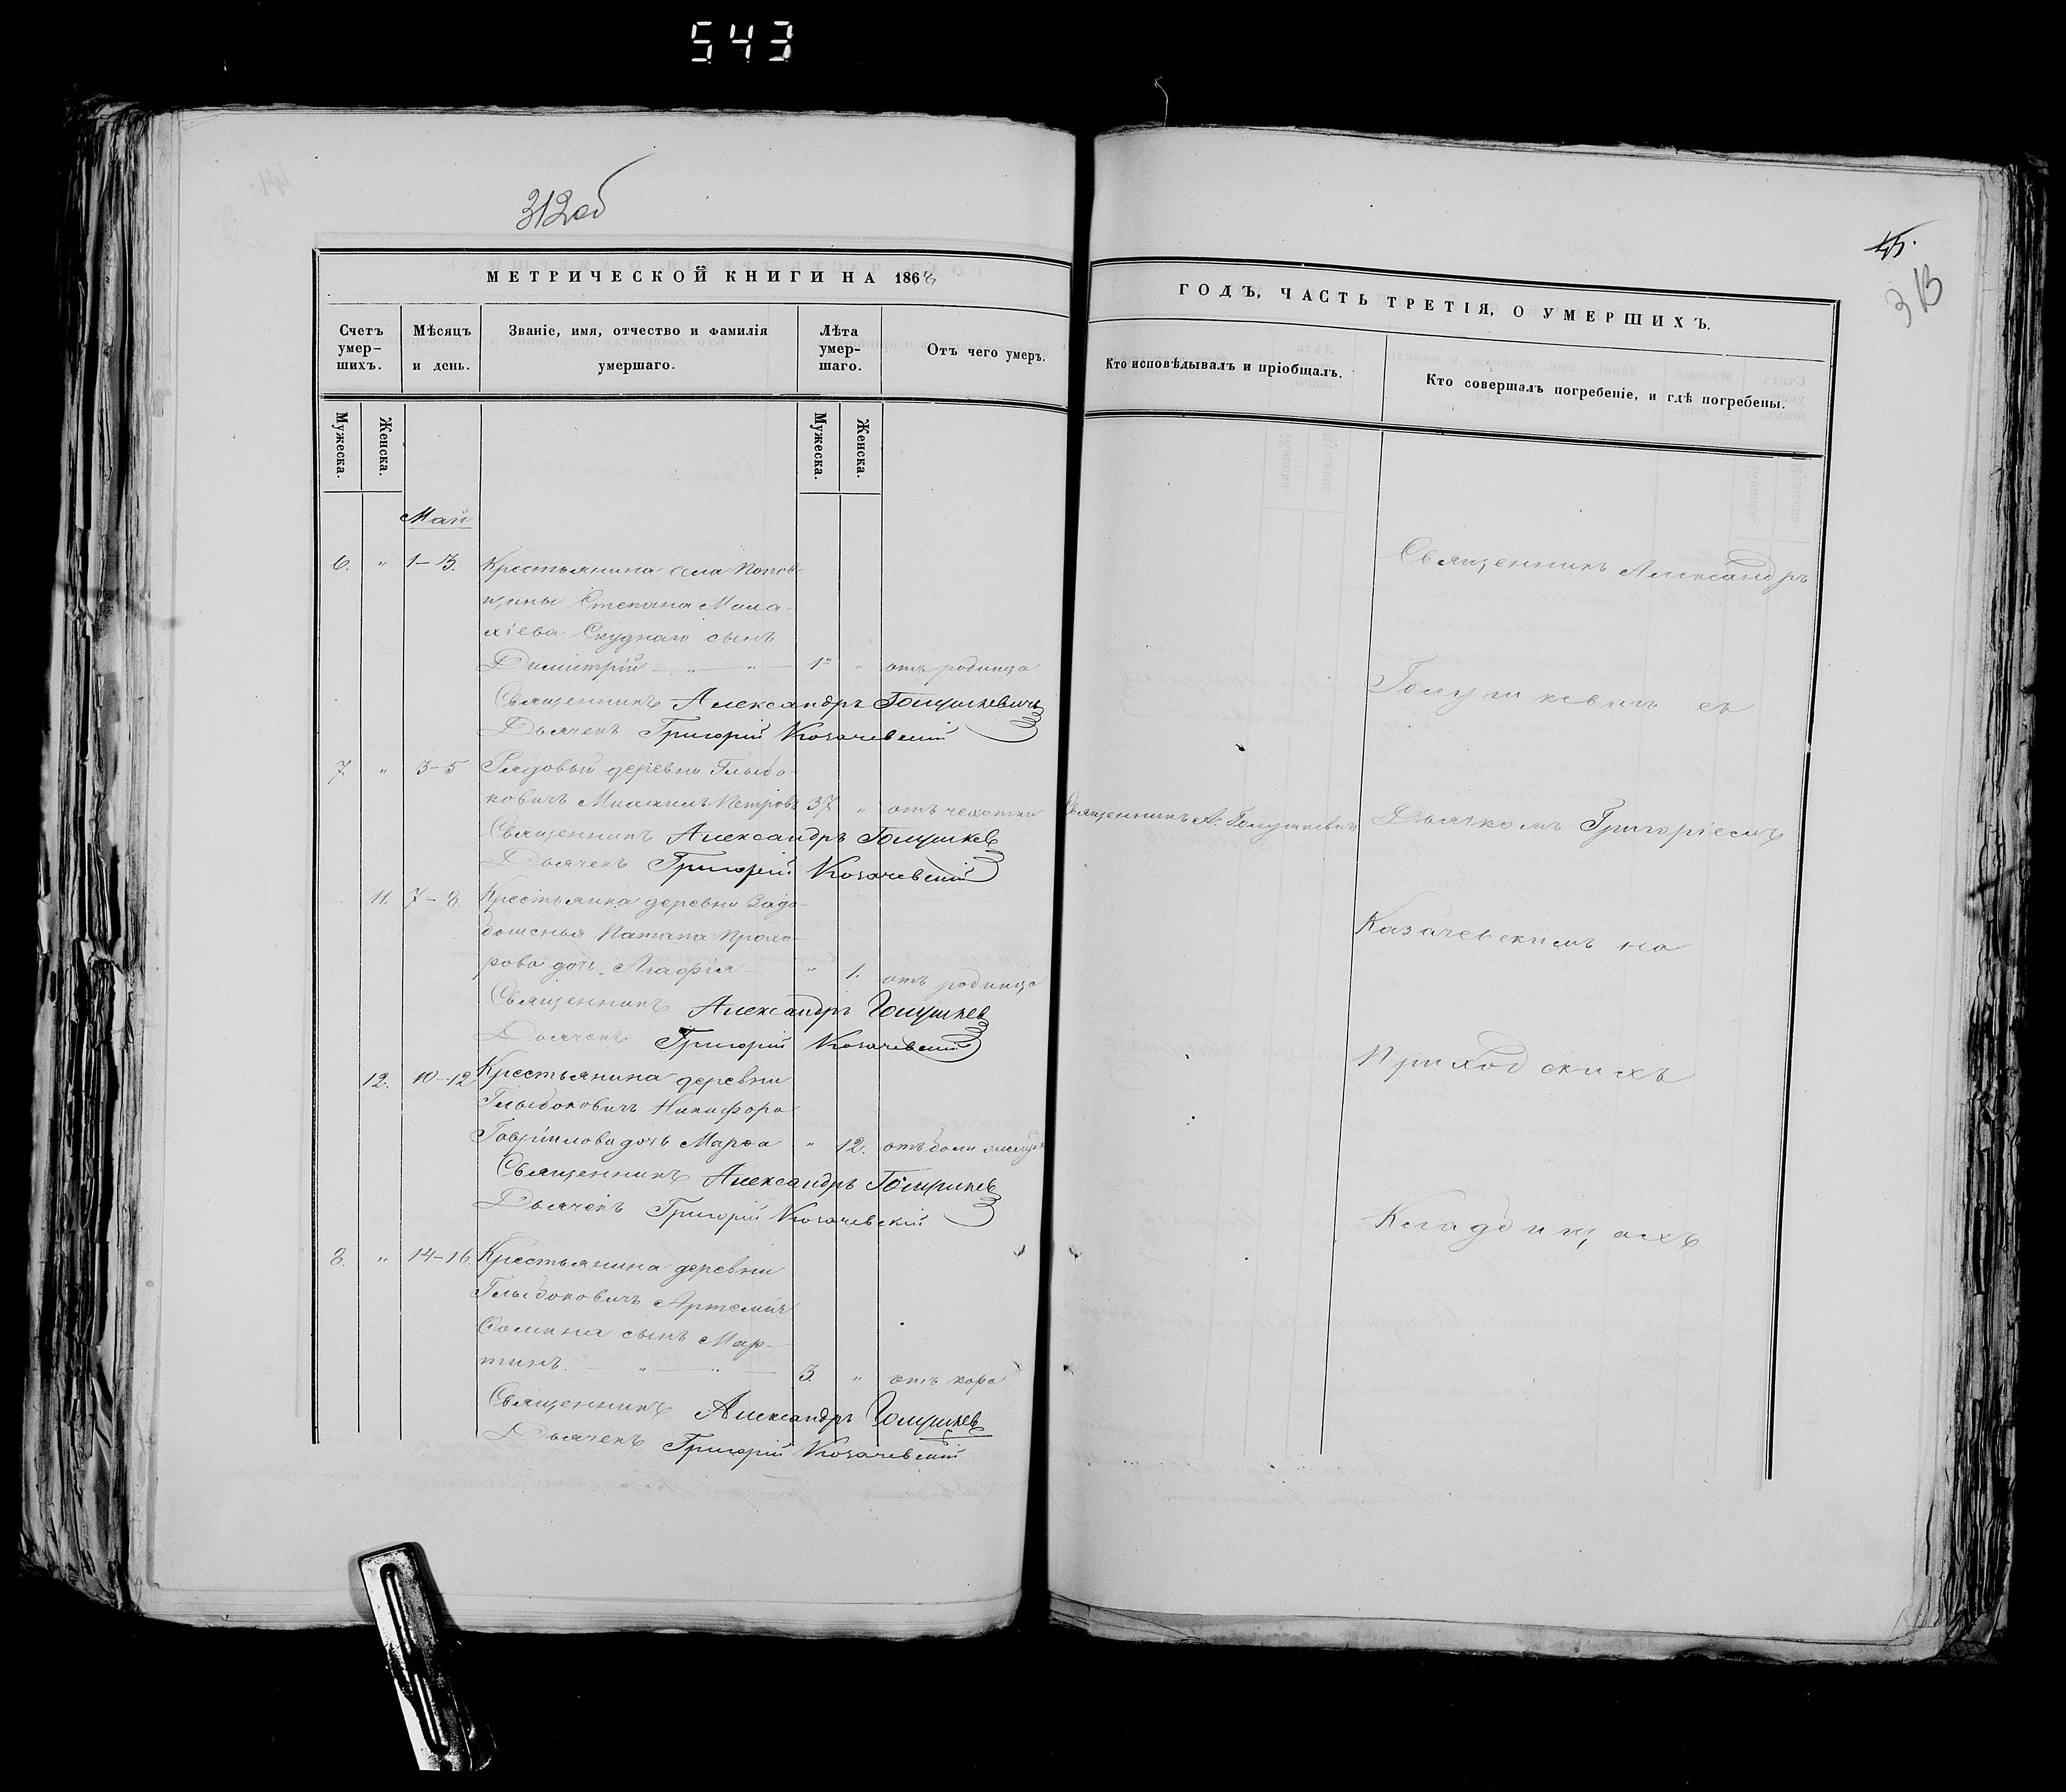 543
312об
45.
313
МЕТРИЧЕСКОЙ КНИГИ НА 186
ГОДЪ, ЧАСТЬ ТРЕТІЯ, О УМЕРШИХЪ.
Счетъ умер-шихъ.
Мѣсяцъ и день.
Званіе, имя, отчество и фамилія умершаго.
Лѣта умер-шаго.
Отъ чего умеръ.
Кто исповѣдывалъ и пріобщалъ.
Кто совершалъ погребеніе, и гдѣ погребены.
Мужеска.
Женска.
Мужеска.
Женска.
Май
6. " 1–3. Крестьянина села Попов-
щины Степана Мала-
хіева Скуднаго сынъ
Димитрій — " — " — 1" " отъ родимца
Священникъ Александръ Голушкевичъ
Дьячекъ Григорій Козачевскій
7 " 3–5 Рядовый деревни Глыбо-
ковичъ Михаилъ Петровъ 37 " отъ чехотки Священникъ А. Голушкевичъ
Священникъ Александръ Голушкев
Дьячекъ Григорій Козачевскій
11. 7–8. Крестьянина деревни
Патапа Прохо-
рова дочь Агафія " 1. отъ родимца
Священникъ Александръ Голушкев
Дьячекъ Григорій Козачевскій
12. 10–12 Крестьянина деревни
Глыбоковичъ Никифора
Гавріилова дочь Марѳа " 12. отъ боли
Священникъ Александръ Голушкев
Дьячекъ Григорій Козачевскій
8. " 14–16. Крестьянина деревни
Глыбоковичъ Артемія
Ѳомина сынъ Мар-
тинъ. — " — " — 3. " отъ кора
Священникъ Александръ Голушкев
Дьячекъ Григорій Козачевскій
Священникъ Александръ
Голушкевичъ съ
Дьячкомъ Григоріемъ
Казачевскимъ на
Приходскихъ
Кладбищахъ